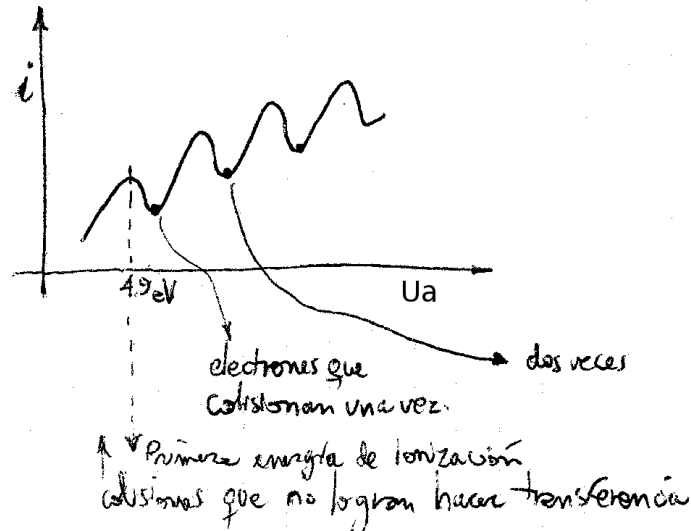 i
4.9eV
Ua
electrones que
colisionan una vez.
dos veces
Primera energía de Ionización
colisiones que no logran hacer transferencia